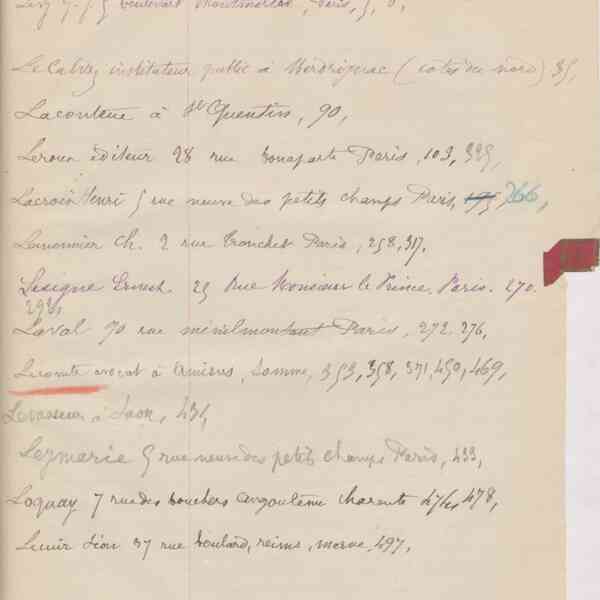 boulevard Montmartre, Paris,
Le Calvez instituteur public à Merdrignac (cotes du nord) 35,
Lacontene à St Quentin, 90,
Leroux éditeur 28 rue bonaparte Paris, 103, 325,
Lacroix Henri 5 rue neuve des petits champs Paris, 195, 266,
Lemonnier Ch. 2 rue Tronchet Paris, 258, 317,
Lesigne Ernest 25 Rue Monsieur le Prince. Paris. 270.
292,
Laval 70 rue ménilmontant Paris, 272, 276,
Lecomte avocat à Amiens, Somme, 353, 358, 371, 450, 469,
Levasseur à Laon, 431,
Leymarie 5 rue neuve des petits champs Paris, 433,
Loquay 7 rue des bouchers angouleme charente 474, 478,
Léon 37 rue boulard, reims, marne, 497,